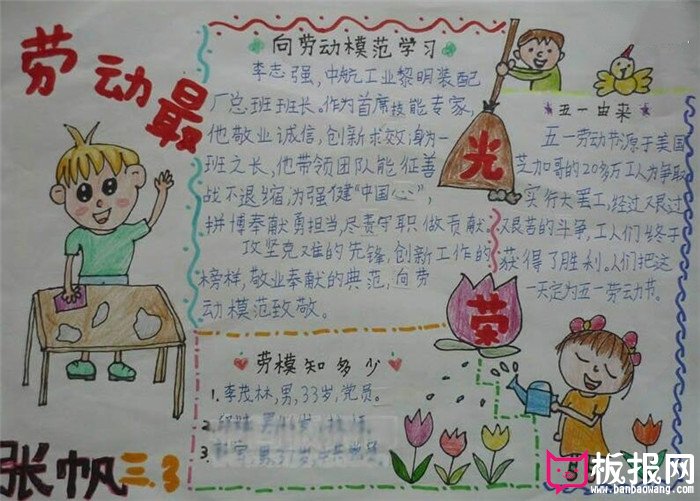 劳动最
光
荣
向劳动模范学习
李志强,中航工业黎明装配
厂总班班长。作为首席技能专家,
他敬业诚信,创新求效;身为一
班之长,他带领团队能征善
战不退缩,为强健“中国心”,
拼博奉献勇担当,尽责守职做贡献。
攻坚克难的先锋,创新工作的
榜样,敬业奉献的典范,向劳
动模范致敬。
五一由来
五一劳动节源于美国
芝加哥的20多万工人为争取
实行大罢工,经过又艰过
又艰苦的斗争,工人们终于
获得了胜利。人们把这
一天定为五一劳动节。
劳模知多少
1.李茂林,男,33岁,党员。
2.
3
张帆三.3
5
板报网
www.banbaowang.com